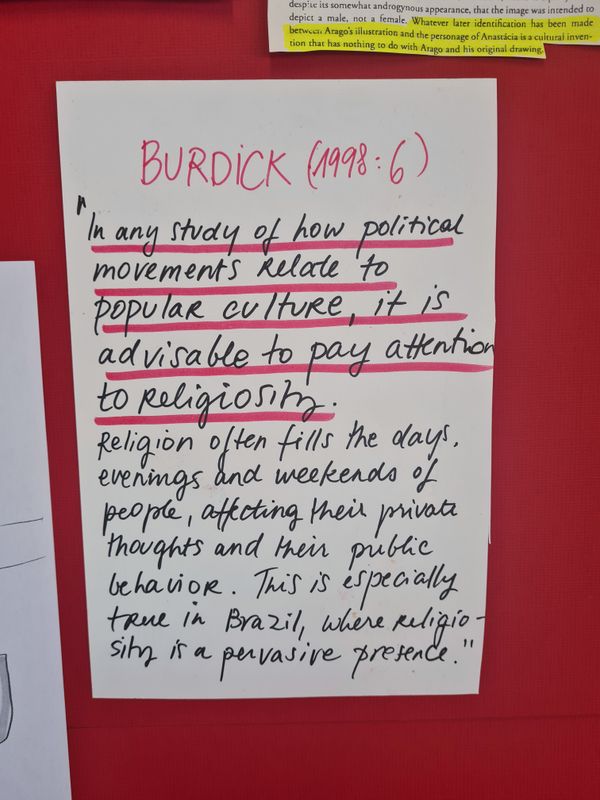 despite its somewhat androgynous appearance, that the image was intended to
depict a male, not a female. Whatever later identification has been made
between Arago's illustration and the personage of Anastácia is a cultural inven-
tion that has nothing to do with Arago and his original drawing.
BURDICK (1998:6)
"In any study of how political
movements relate to
popular culture, it is
advisable to pay attention
to religiosity.
Religion often fills the days,
evenings and weekends of
people, affecting their private
thoughts and their public
behavior. This is especially
true in Brazil, where religio-
sity is a pervasive presence."